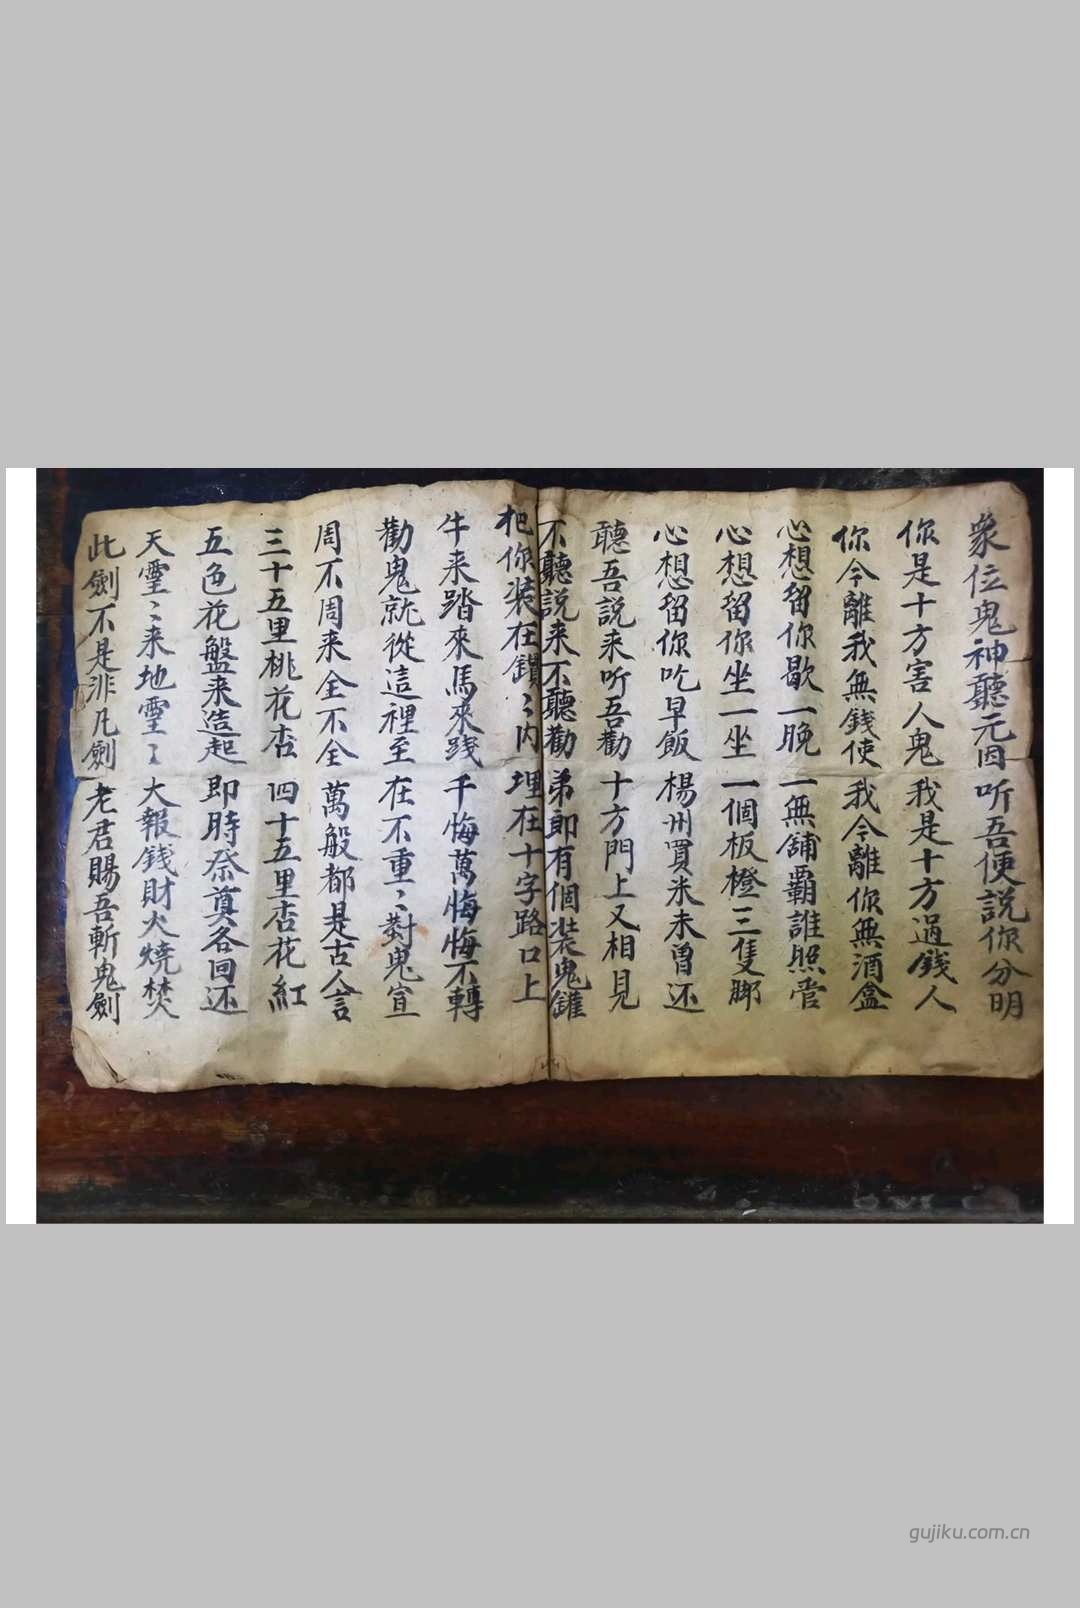 衆位鬼神聽元因听吾便説你分明
你是十方害人鬼我是十方過錢人
你今離我無錢使我今離你無酒盒
心想留你歇一晚一無舖霸誰照管
心想留你坐一坐一個板橙三隻脚
心想留你吃早飯楊州買米未曾还
聽吾説来听吾勸十方門上又相見
不聽説来不聽勸弟即有個装鬼罐
把你装在鑽〻内埋在十字路口上
牛来踏來馬來践千悔萬悔悔不轉
勸鬼就從這裡至在不重〻對鬼宣
周不周来全不全萬般都是古人言
三十五里桃花杏四十五里杏花紅
五色花盤来造起即時祭奠各回还
天霊〻来地霊〻大報錢財火燒焚
此劍不是非凡劍老君賜吾斬鬼劍
gujiku.com.cn